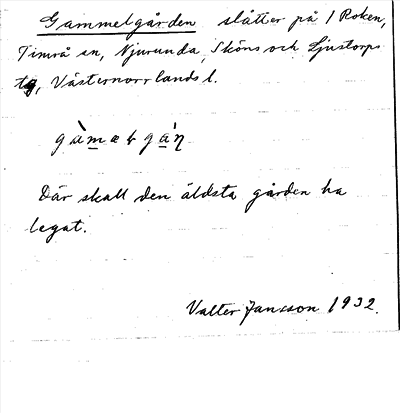 Gammelgården slåtter på /Roken,
Timrå sn, Njurunda, Sköns och Ljustorps
tg, Västernorrlands l.
gàmæłgáṇ
Där skall den äldsta gården ha
legat.
Valter Jansson 1932.